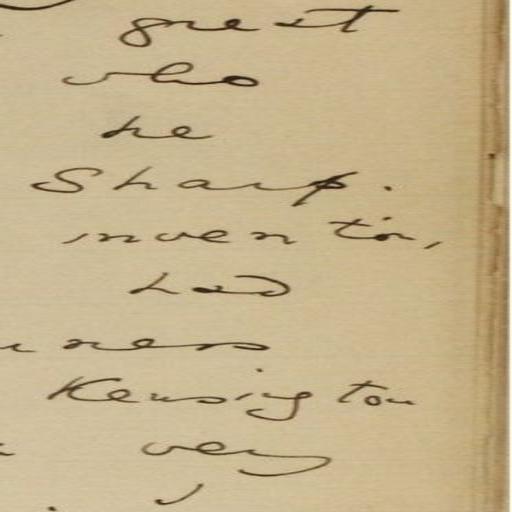 great
who
he
Sharp.
invention,
had
Kensington
very